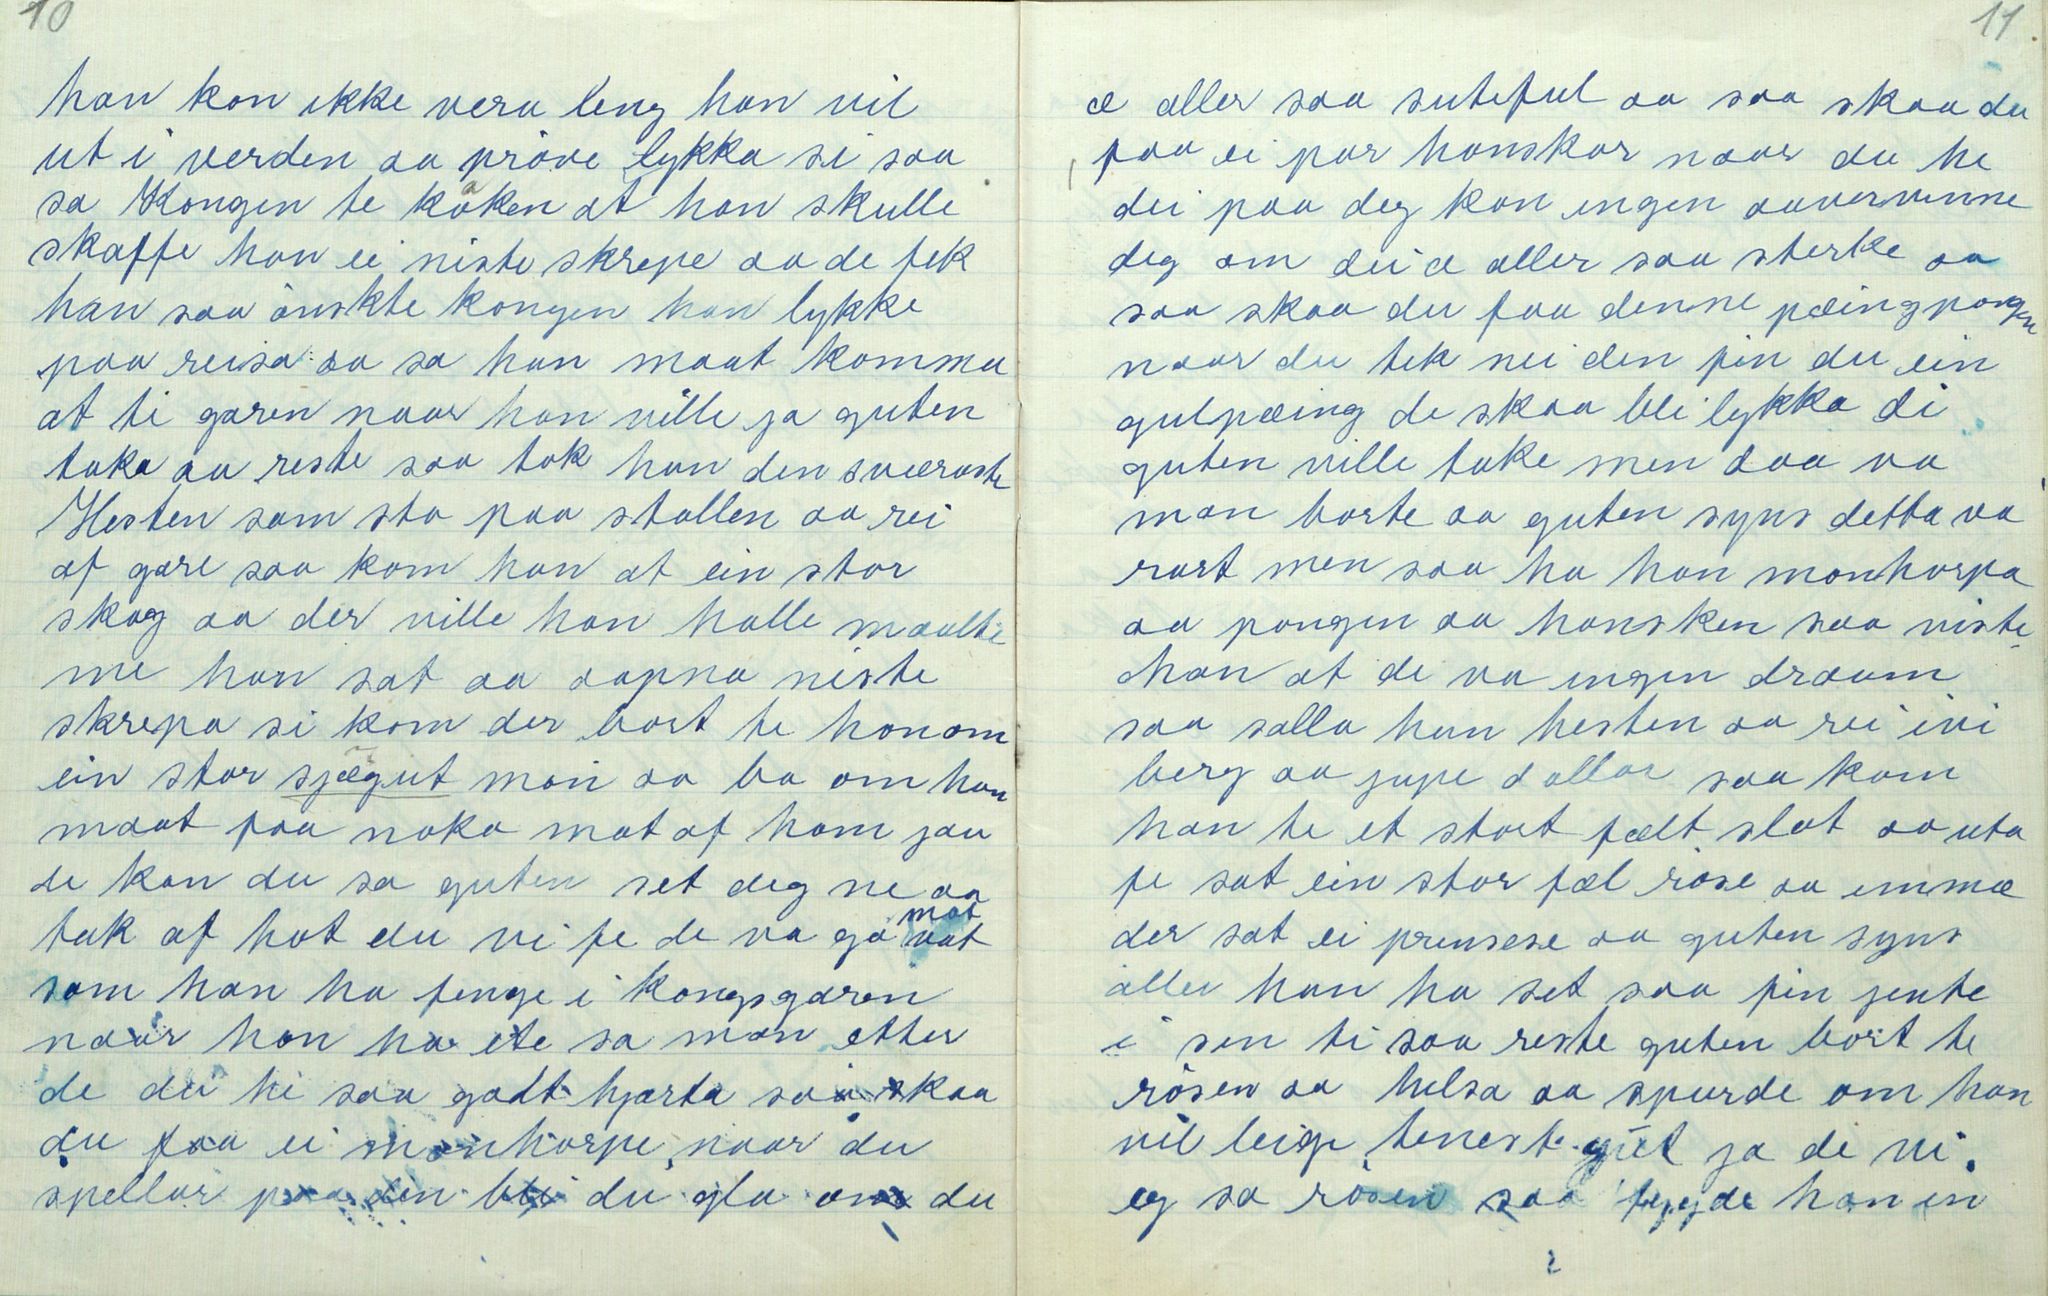 10
han kan ikke vera leng han vil
ut i verden aa pröve lykka si saa
sa Kongen te kåken at han skulle
skaffe han ei niste skrepe aa de fek
han saa önskte kongen han lykke
paa reisa aa sa han maat komma
at ti garen naar han ville ja guten
taka aa reste saa tok han den sværaste
Hesten som sto paa stallen aa rei
af gare saa kom han at ein stor
skog aa der ville han halle maalti
me han sat aa aapna niste
skrepa si kom der bort te honom
ein stor sjægut man aa ba om han
maat faa noko mat af ham jau
de kan du sa guten set deg ne aa
tak af hot du vi fe de va go mat
som han ha fenge i kongsgaren
naar han ha ete sa man etter
de du he saa godt hjarta saa skaa
du faa ei monharpe naar du
spellar paa den bli du gla om du
11
æ aller saa suteful aa saa skaa du
faa ei par hanskar naar du he
dei paa deg kan ingen aavervinne
deg om dei æ aller saa sterke aa
saa skaa du faa denne pæingpongen
naar du tek nei den fin du ein
gulpæing de skaa bli lykka di
guten ville take men daa va
man borte aa guten syns detta va
rart men saa ha han monharpa
aa pongen aa hansken saa viste
han at de va ingen draum
saa salla han hesten aa rei ivi
berg aa jupe dallar saa kom
han te et stort fælt slot aa uta
fe sat ein stor fæl rise aa imme
der sat ei prensese aa guten syns
aller han ha set saa fin jente
i sin ti saa reste guten bort te
rösen aa helsa aa spurde om han
vil leige tenestegut ja de vi
eg sa rösen saa fygde han in